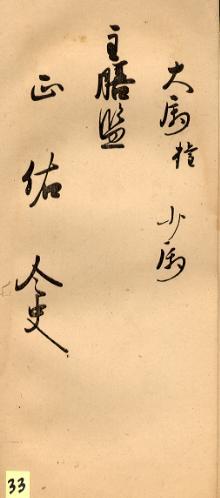 大属 権 少属
主膳監
正 佑 令史
33